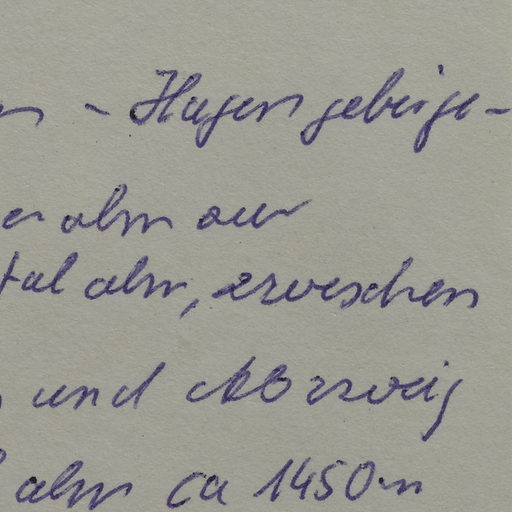 n - Hagengebirge -
er alm aur
tal alm, zwischen
und Abzweig
alm ca 1450 m